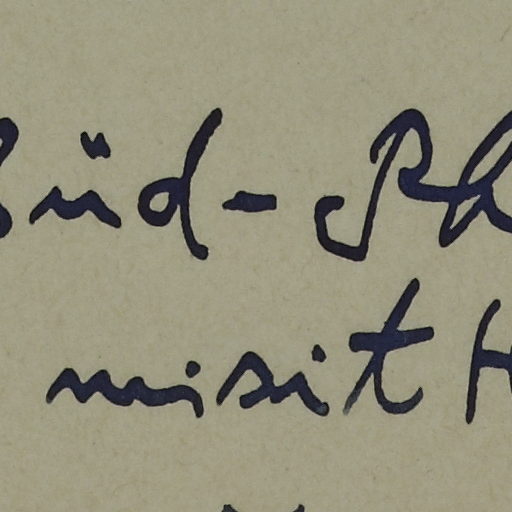 Süd-Rh
misit H